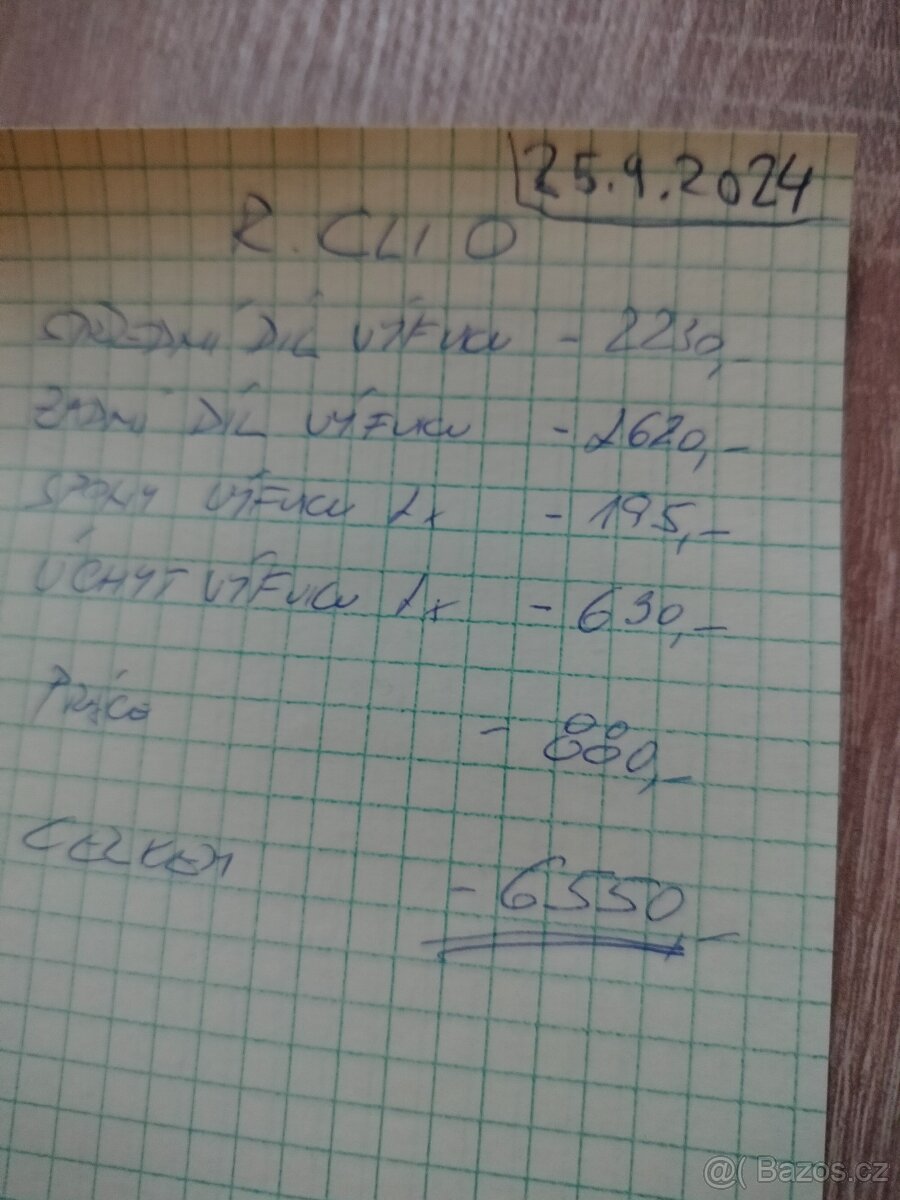 25.9.2024
R. CLIO
STŘEDNÍ DÍL VÝFUKU - 2230,-
ZADNÍ DÍL VÝFUKU - 2620,-
SPONY VÝFUKU 2x - 195,-
ÚCHYT VÝFUKU 2x - 630,-
Práce - 880,-
CELKEM - 6550,-
@( Bazoš.cz